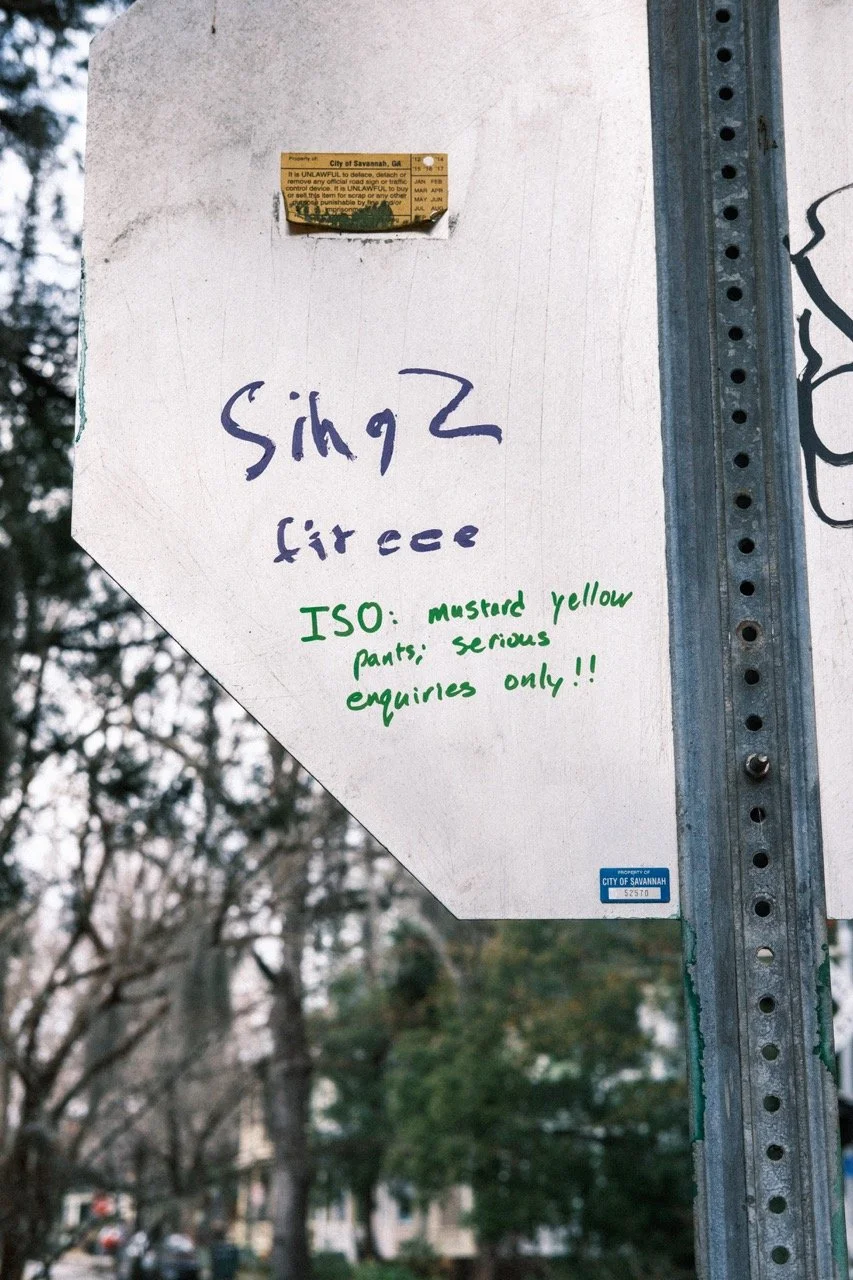 Property of: City of Savannah, GA
It is UNLAWFUL to deface, detach or
remove any official road sign or traffic
control device. It is UNLAWFUL to buy
or sell this item for scrap or any other
purpose punishable by fine and/or
12 14
15 16 17
JAN FEB
MAR APR
MAY JUN
JUL AUG
fir eee
ISO: mustard yellow
pants; serious
enquiries only!!
PROPERTY OF
CITY OF SAVANNAH
52570